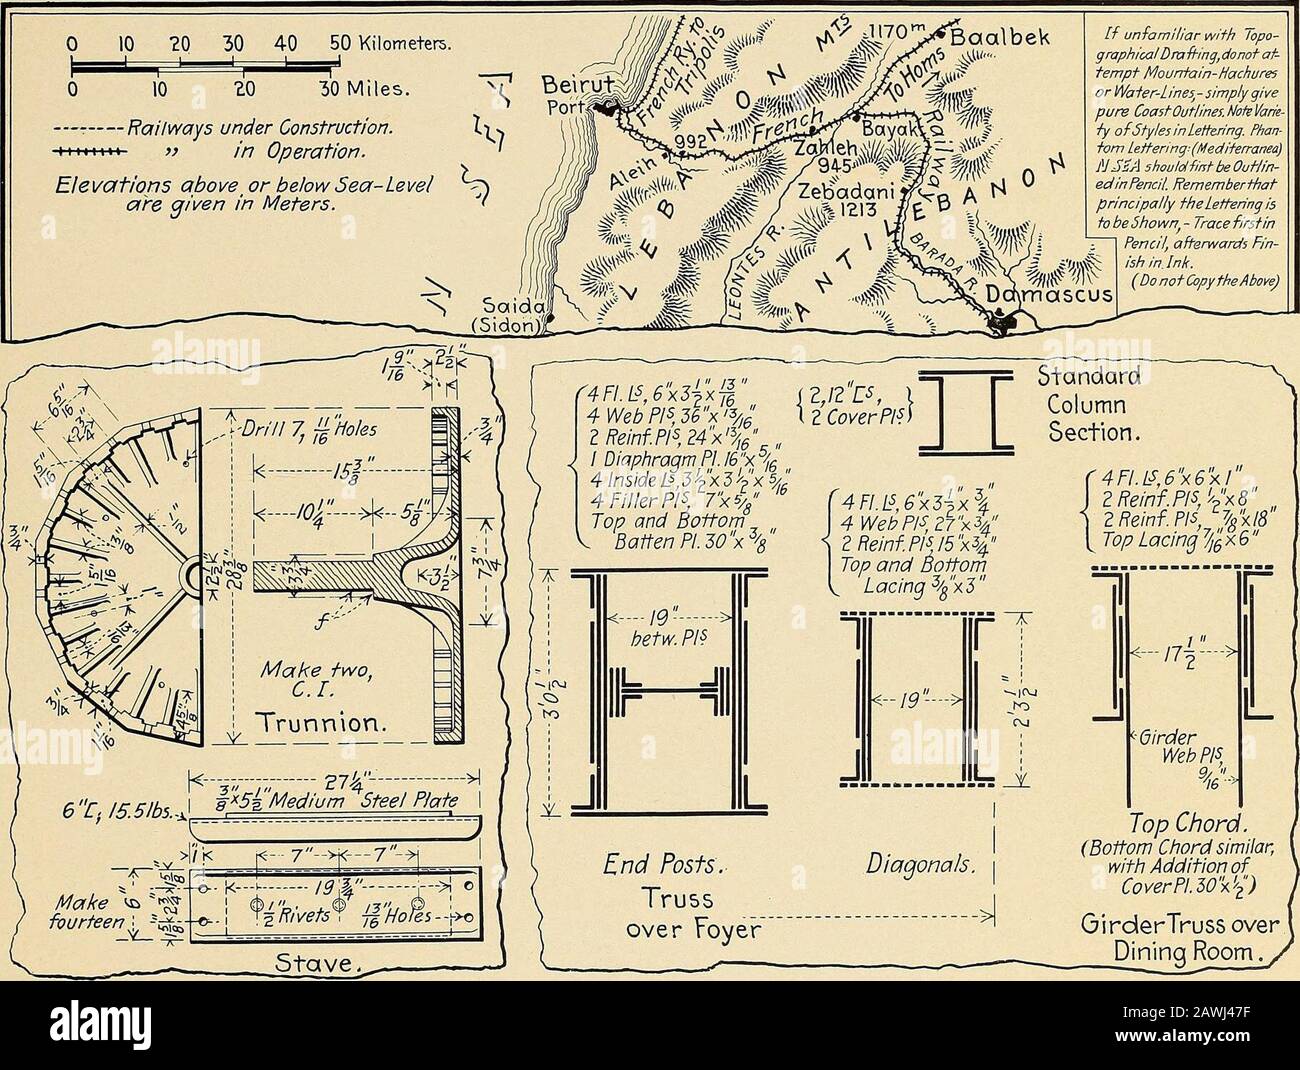 0 10 20 30 40 50 Kilometers.
0 10 20 30 Miles.
Railways under Construction.
" in Operation.
Elevations above or below Sea-Level
are given in Meters.
N SEA
Beirut
Port
French Ry. to
Tripolis
MTS
1170m
Baalbek
To Homs
LEBANON
French
Railway
Bayak
992
Aleih
Zahleh
945
Zebadani
1213
ANTILEBANON
LEONTES R.
BARADA R.
Damascus
Saida
(Sidon)
If unfamiliar with Topo-
graphical Drafting, do not at-
tempt Mountain-Hachures
or Water-Lines,- simply give
pure Coast Outlines. Note Varie-
ty of Styles in Lettering. Phan-
tom Lettering: (Mediterranea)
N SEA should first be Outlin-
ed in Pencil. Remember that
principally the Lettering is
to be Shown,- Trace first in
Pencil, afterwards Fin-
ish in Ink.
(Do not Copy the Above)
1 9/16"
2 1/2"
6 5/16"
2 3/4"
1 5/16"
3/4"
Drill 7, 11/16" Holes
3/4"
15 3/8"
10 1/4"
5 1/8"
1/2"
3/8"
1 5/16"
1"
2 1/2"
28 3/8"
3 1/4"
3 1/2"
7 3/4"
f
3/4"
1 1/16"
4 5/8"
Make two,
C. I.
Trunnion.
27 1/4"
3/8"x5 1/2" Medium Steel Plate
6"[; 15.5 lbs.
1"
7" 7"
19 3/4"
Make
fourteen
6"
1 5/8" 2 3/4" 1 5/8"
1/2" Rivets
13/16" Holes
Stave.
4 Fl. Ls, 6"x3 1/2"x 13/16"
4 Web Pls, 36"x 13/16"
2 Reinf. Pls, 24"x 13/16"
1 Diaphragm Pl. 16"x 5/16"
4 Inside Ls, 3 1/2"x3 1/2"x 5/16"
4 Filler Pls, 7"x 5/8"
Top and Bottom
Batten Pl. 30"x 3/8"
2, 12" [s,
2 Cover Pls
Standard
Column
Section.
4 Fl. Ls, 6"x3 1/2"x 3/4"
4 Web Pls, 27"x 3/4"
2 Reinf. Pls 15"x 3/4"
Top and Bottom
Lacing 3/8"x3"
4 Fl. Ls, 6"x6"x1"
2 Reinf. Pls, 1/2"x8"
2 Reinf. Pls, 7/8"x18"
Top Lacing 7/16"x6"
3'0 1/2"
19"
betw. Pls
19"
2'3 1/2"
17 1/2"
Girder
Web Pls,
9/16"
End Posts.
Diagonals.
Truss
over Foyer
Top Chord.
(Bottom Chord similar,
with Addition of
Cover Pl. 30"x 1/2")
Girder Truss over
Dining Room.
alamy
Image ID: 2AWJ47F
www.alamy.com